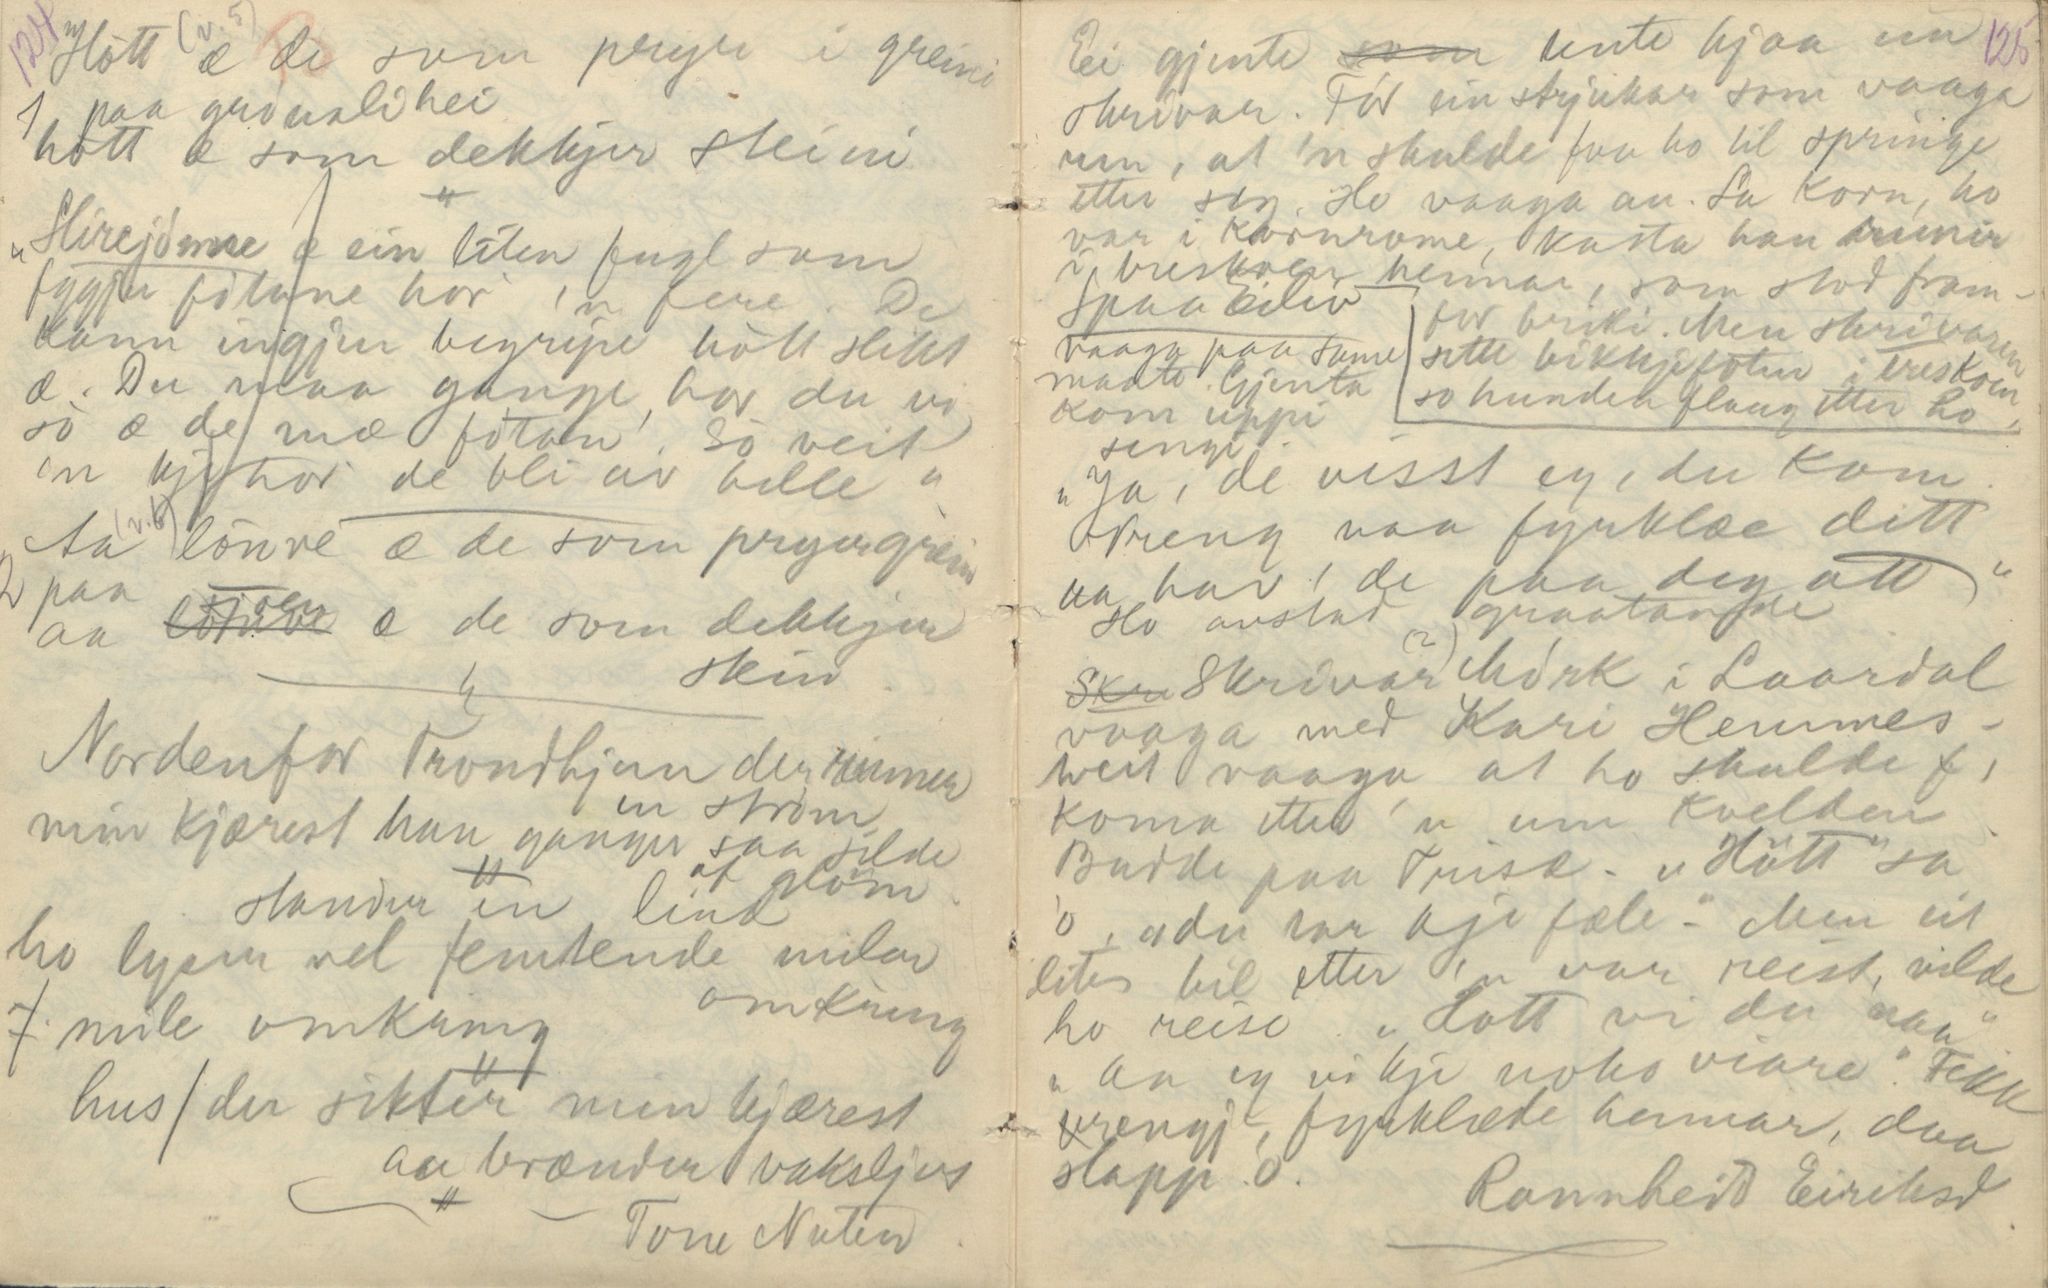 124
(v. 5)
"Hött æ de som pryer i greini
1 paa grönalihei
hött æ som dekkjer steini
"
"Skirejömne æ ein liten fugl som
fygjer fötane hor 'n fere. De
kann ingjen begripe hött slikt
æ. Du maa gange, hor du vi
so æ de mæ fötan'. So veit
'n kje hor de bli av bille"
(v. 6)
Aa lönve æ de som pryer greini
2 paa
aa æ de som dekkjer
stein
Nordenfor Trondhjem der rinner
en ström
min kjærest han ganger saa silde
af glöm
stander en lind
ho lyser vel femtende milar
omkring
7. mile omkring
hus / der sikter min kjærest
aa brænder voksljos
Tone Nuten.
125
Ei gjente som tente hjaa ein
skrivar. Før ein strjukar som vaaga
um, at 'n skulde faa ho til springe
etter seg. Ho vaaga an. Sa Korn, ho
var i kornrome, kasta han runir
i, hennar, som stod fram-
for briki. Men skrivaren
sette bikkjefoten i treskoen
so hunden flaug etter ho.
Spaa Eiliv
vaaga paa same
maate. Gjenta
kom uppi
sengi.
"Ja, de visst eg, du kom.
Vreng naa fyrklæe ditt
aa hav' de paa deg att"
Ho avstad graatande
Skr Skrivar (?) Mörk i Laardal
vaaga med Kari Hemmes-
tveit vaaga at ho skulde f,
koma etter 'n um kvelden.
Budde paa Trisæ. "Hött" sa
'o, "du tar kje fæle" Men eit
lite bil etter 'n var reist, vilde
ho reise. "Hott vi du naa"
"aa eg vi kje noko viare". Fekk
vrengj', fyrklæde hennar, daa
slapp 'o.
Rannheid Eiriksd.